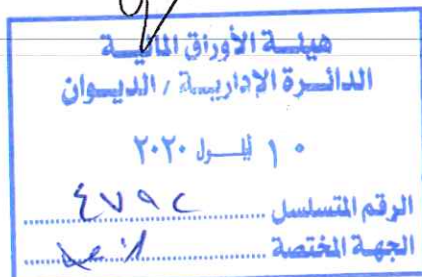 هيئة الأوراق المالية
الدائرة الإدارية / الديوان
١٠ أيلول ٢٠٢٠
الرقم المتسلسل ٤٧٩٢
الجهة المختصة